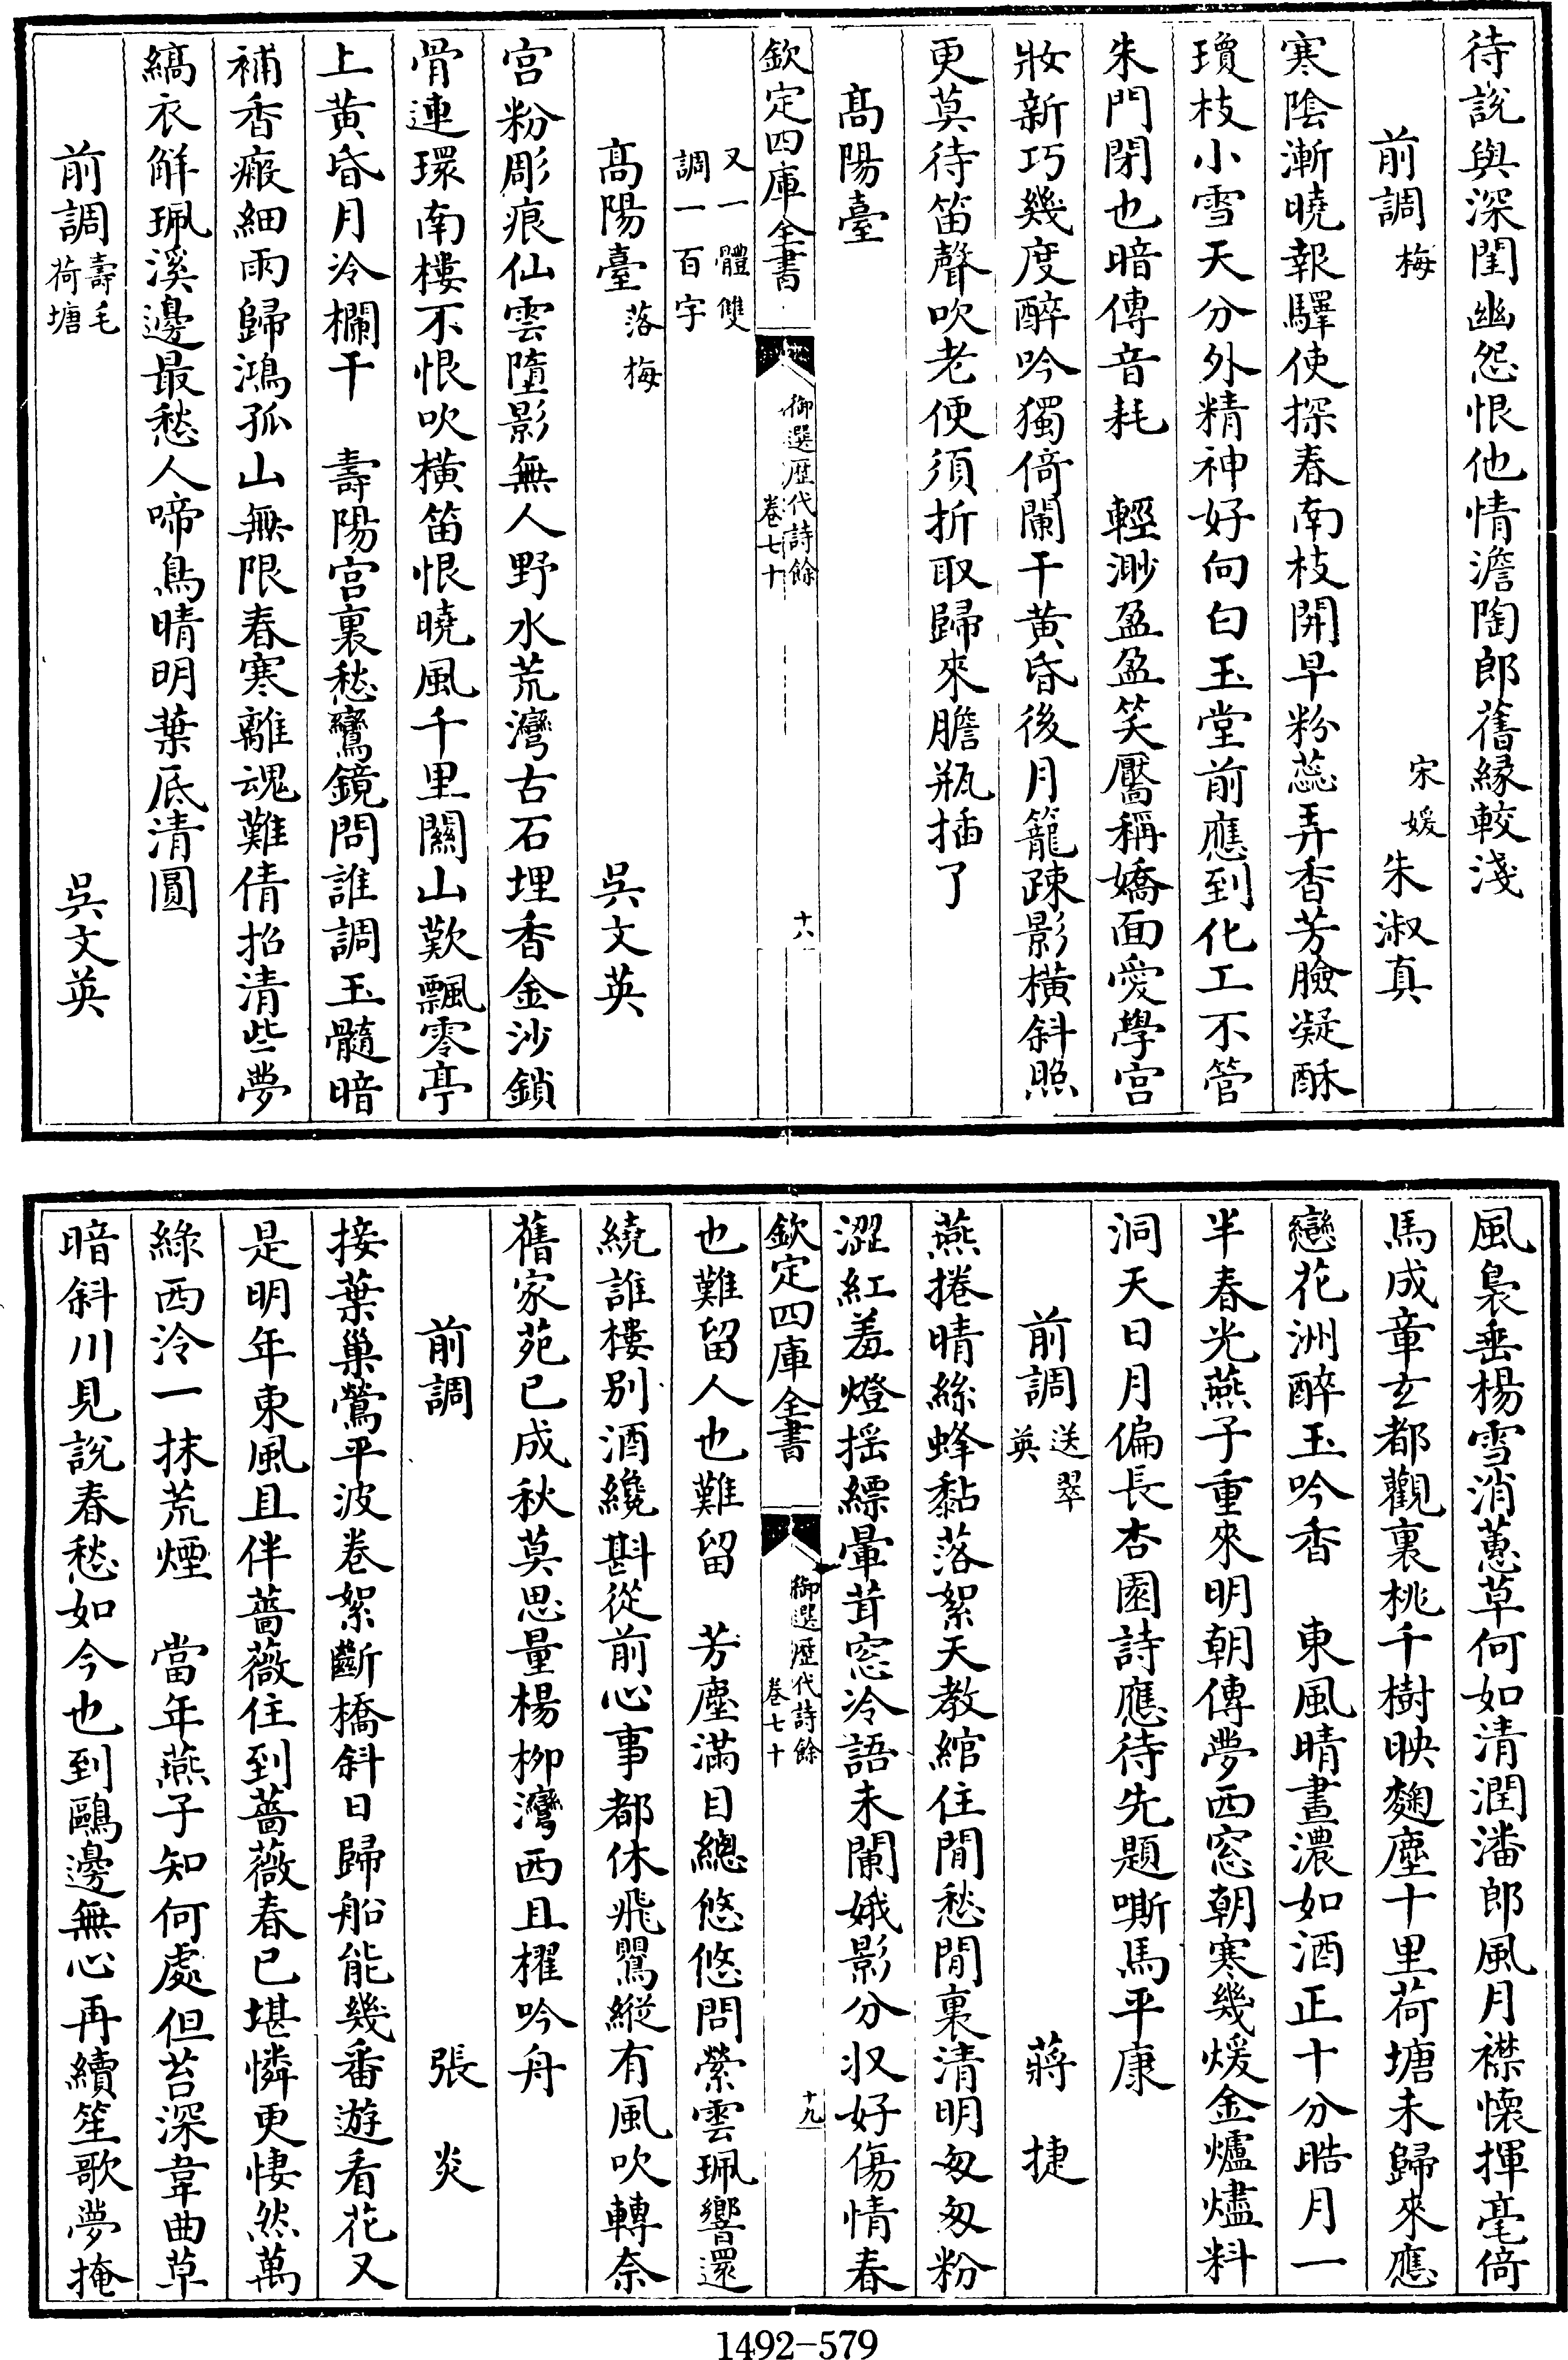 待說與深閨幽怨恨他情澹陶郎舊縁較淺
前調梅　宋媛朱淑真
寒陰漸曉報驛使探春南枝開早粉蕊弄香芳臉凝酥
瓊枝小雪天分外精神好向白玉堂前應到化工不管
朱門閉也暗傳音耗　輕渺盈盈笑靨稱嬌面愛學宫
妝新巧幾度醉吟獨倚闌干黄昏後月籠疎影横斜照
更莫待笛聲吹老便須折取歸來膽瓶插了
髙陽臺
欽定四庫全書　御選歴代詩餘　卷七十　十八
又一體雙
調一百字
髙陽臺落梅　吳文英
宫粉彫痕仙雲墮影無人野水荒灣古石埋香金沙鎖
骨連環南樓不恨吹横笛恨曉風千里關山歎飄零亭
上黄昏月冷欄干　壽陽宫裏愁鸞鏡問誰調玉髓暗
補香瘢細雨歸鴻孤山無限春寒離魂難倩招清些夢
縞衣解珮溪邊最愁人啼鳥晴明葉底清圓
前調壽毛荷塘　吳文英
風裊垂楊雪消蕙草何如清潤潘郎風月襟懷揮毫倚
馬成章玄都觀裏桃千樹映麴塵十里荷塘未歸來應
戀花洲醉玉吟香　東風晴晝濃如酒正十分皓月一
半春光燕子重來明朝傳夢西窓朝寒幾煖金爐燼料
洞天日月偏長杏園詩應待先題嘶馬平康
前調送翠英　蔣捷
燕捲晴絲蜂黏落絮天教綰住閒愁閒裏清明匆匆粉
澀紅羞燈揺縹暈茸窓冷語未闌娥影分收好傷情春
欽定四庫全書　御選歴代詩餘　卷七十　十九
也難留人也難留　芳塵滿目總悠悠問縈雲珮響還
繞誰樓别酒纔斟從前心事都休飛鶯縱有風吹轉奈
舊家苑已成秋莫思量楊柳灣西且櫂吟舟
前調　張炎
接葉巢鶯平波卷絮斷橋斜日歸船能幾番遊看花又
是明年東風且伴薔薇住到薔薇春已堪憐更悽然萬
緑西泠一抹荒煙　當年燕子知何處但苔深韋曲草
暗斜川見說春愁如今也到鷗邊無心再續笙歌夢掩
1492-579